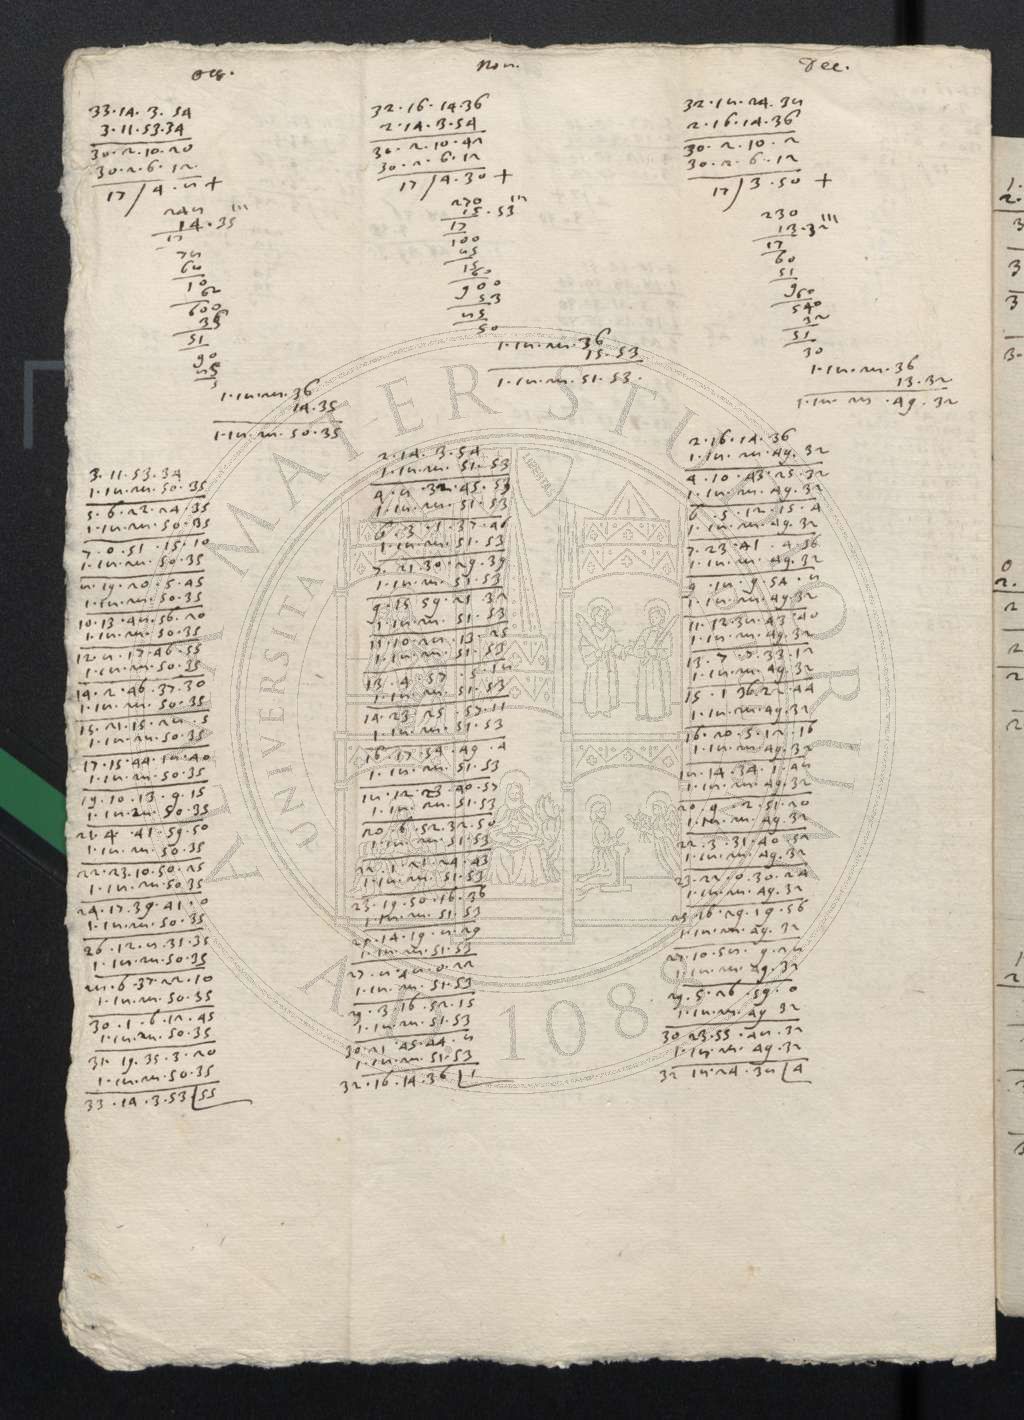 Oct.
33·14·3·54
3·11·53·34
30·2·10·20
30·2·6·12
17/4·8 +
248
14·35'''
17
78
68
10
60
600
35
51
90
85
5
1·18·28·36
14·35
1·18·28·50·35
3·11·53·34
1·18·28·50·35
5·6·22·24·35
1·18·28·50·35
7·0·51·15·10
1·18·28·50·35
8·19·20·5·45
1·18·28·50·35
10·13·48·56·20
1·18·28·50·35
12·8·17·46·55
1·18·28·50·35
14·2·46·37·30
1·18·28·50·35
15·21·15·28·5
1·18·28·50·35
17·15·44·18·40
1·18·28·50·35
19·10·13·9·15
1·18·28·50·35
21·4·41·59·50
1·18·28·50·35
22·23·10·50·25
1·18·28·50·35
24·17·39·41·0
1·18·28·50·35
26·12·8·31·35
1·18·28·50·35
28·6·37·22·10
1·18·28·50·35
30·1·6·12·45
1·18·28·50·35
31·19·35·3·20
1·18·28·50·35
33·14·3·53|55
Nov.
32·16·14·36
2·14·3·54
30·2·10·42
30·2·6·12
17/4·30 +
270
15·53'''
17
100
85
15
60
900
53
85
50
1·18·28·36
15·53
1·18·28·51·53
2·14·3·54
1·18·28·51·53
4·8·32·45·53
1·18·28·51·53
6·3·1·37·46
1·18·28·51·53
7·21·30·29·39
1·18·28·51·53
9·15·59·21·32
1·18·28·51·53
11·10·28·13·25
1·18·28·51·53
13·4·57·5·18
1·18·28·51·53
14·23·25·57·11
1·18·28·51·53
16·17·54·49·4
1·18·28·51·53
18·12·23·40·57
1·18·28·51·53
20·6·52·32·50
1·18·28·51·53
22·1·21·24·43
1·18·28·51·53
23·19·50·16·36
1·18·28·51·53
25·14·19·8·29
1·18·28·51·53
27·8·48·0·22
1·18·28·51·53
29·3·16·52·15
1·18·28·51·53
30·21·45·44·8
1·18·28·51·53
32·16·14·36|1
Dec.
32·18·24·38
2·16·14·36
30·2·10·2
30·2·6·12
17/3·50 +
230
13·32'''
17
60
51
960
540
32
51
30
1·18·28·36
13·32
1·18·28·49·32
2·16·14·36
1·18·28·49·32
4·10·43·25·32
1·18·28·49·32
6·5·12·15·4
1·18·28·49·32
7·23·41·4·36
1·18·28·49·32
9·18·9·54·8
1·18·28·49·32
11·12·38·43·40
1·18·28·49·32
13·7·7·33·12
1·18·28·49·32
15·1·36·22·44
1·18·28·49·32
16·20·5·12·16
1·18·28·49·32
18·14·34·1·48
1·18·28·49·32
20·9·2·51·20
1·18·28·49·32
22·3·31·40·52
1·18·28·49·32
23·22·0·30·24
1·18·28·49·32
25·16·29·19·56
1·18·28·49·32
27·10·58·9·28
1·18·28·49·32
29·5·26·59·0
1·18·28·49·32
30·23·55·48·32
1·18·28·49·32
32·18·24·38|4
ALMA MATER STUDIORUM
LIBERTAS
A.D. 1088